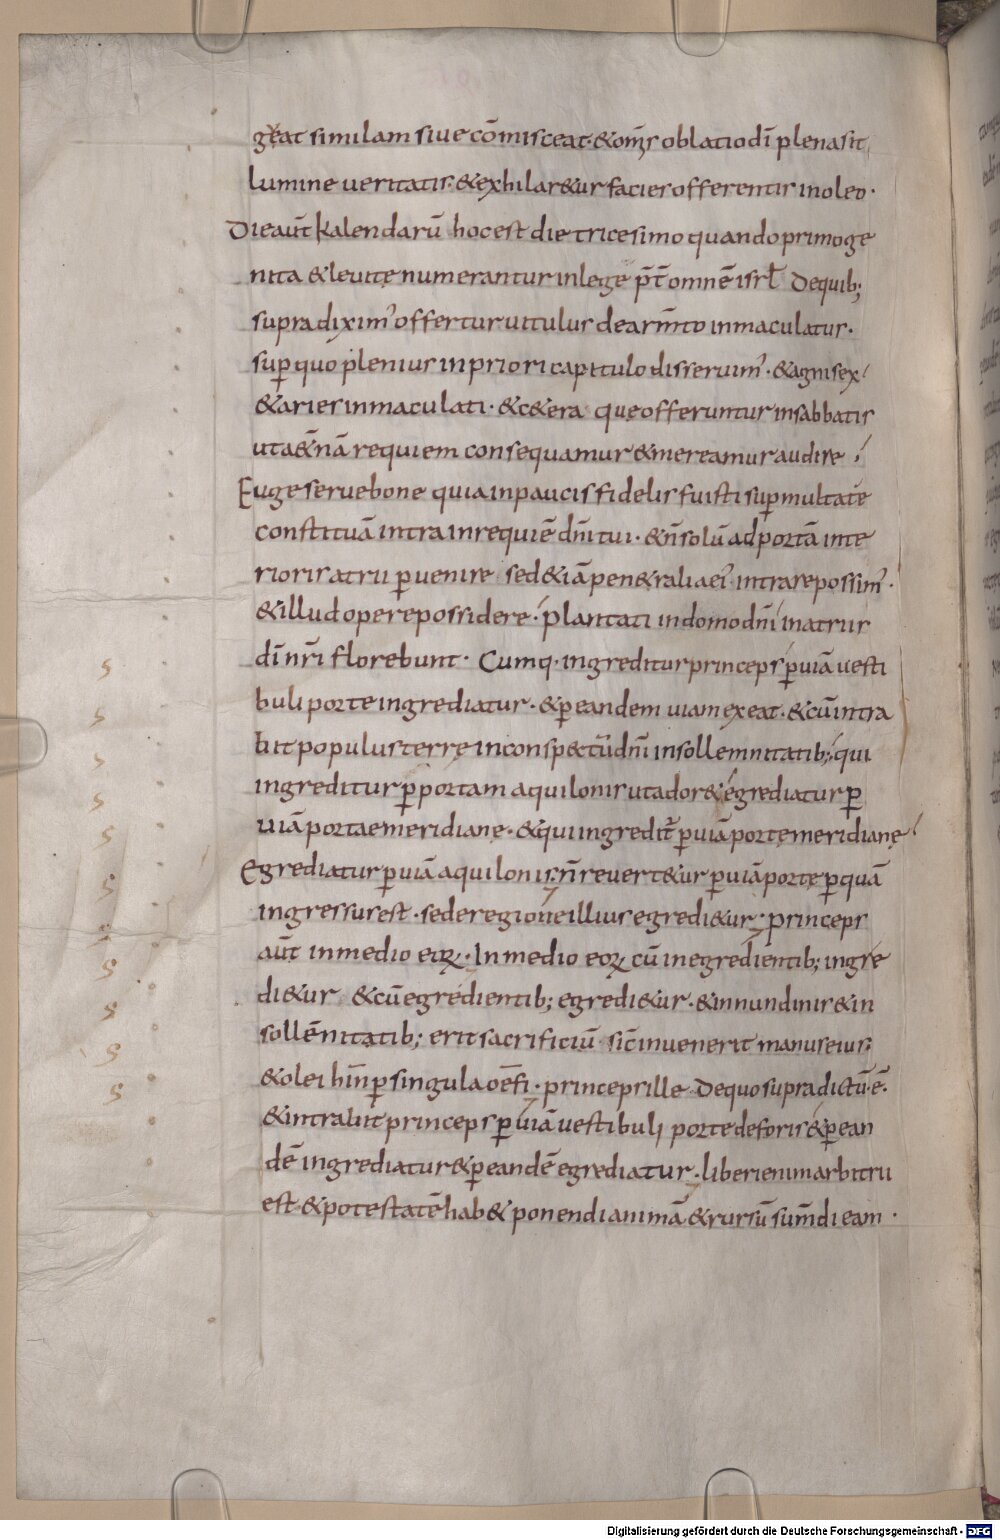 gerat similam siue cōmisceat· & om̄s oblatio dī plena sit
lumine ueritatis· & exhilar&ur facies offerentis in oleo·
Die aut̄ kalendarū hoc est die tricesimo quando primoge
nita & leuitę numerantur in lege p̄t̄ omnē isrł De quib;
supra dixim᾽ offertur uitulus de arm̄to inmaculatus·
sup̄ quo plenius in priori capitulo disseruim᾽· & agni sex
& aries inmaculati· & c&era quę offeruntur in sabbatis
ut a&n̄ā requiem consequamur & mereamur audire
Euge serue bone quia in paucis fidelis fuisti sup̄ multa te
constituā intra in requiē dn̄i tui· & n̄ solū ad portā inte
rioris atrii p̄uenire sed & iā pen&ralia ei᾽ intrare possim᾽·
& illud opere possidere· plantati in domo dn̄i in atriis
dī nr̄i florebunt· Cumq· ingreditur princeps p̄ uiā uesti
buli porte ingrediatur· & p̄ eandem uiam exeat· & cū intra
bit populus terrę in conspectu dn̄i in sollemnitatib; qui
ingreditur p̄ portam aquilonis ut ador& egrediatur p̄
uiā portae meridianę· & qui ingredit᾽ p̄ uiā portę meridianę
Egrediatur p̄ uiā aquilonis· n̄ reuert&ur p̄ uiā portę p̄ quā
ingressus est· sed e regione illius egredi&ur· princeps
aut̄ in medio eoꝝ· In medio eoꝝ cū in egredientib; ingre
di&ur & cū egredientib; egredi&ur· & in nundinis & in
sollēnitatib; erit sacrificiū sic̄ inuenerit manus eius
& olei hin p̄ singula oēfi· princeps ille De quo supra dictū ē·
& intrabit princeps p̄ uiā uestibuli porte de foris & p̄ ean
dē ingrediatur & p̄ eandē egrediatur· liberi enim arbitrii
est & potestatē hab& ponendi animā & rursū sum̄di eam·
Digitalisierung gefördert durch die Deutsche Forschungsgemeinschaft - DFG